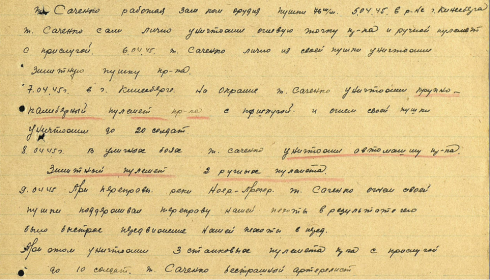 т. Саченко работая зам ком орудия пушки 76 м/м. 5.04.45 в р-не г. Кинесберга
т. Саченко сам лично уничтожил огневую точку пр-ка и ручной пулемет
с прислугой 6.04.45. т. Саченко лично из своей пушки уничтожил
Зенитную пушку пр-ка.
7.04.45 г. в г. Кинесберге. На окраине т. Саченко уничтожил крупно-
калиберный пулемет пр-ка с прислугой и огнем своей пушки
уничтожил до 20 солдат
8.04.45 г. в уличных боях т. Саченко уничтожил автомашину пр-ка.
Зенитный пулемет 2 ручных пулемета.
9.04.45 При переправе реки т. Саченко огнем своей
пушки поддерживал переправу нашей пехоты в результате его
было быстрое продвижение нашей пехоты в перед.
При этом уничтожил 3 станковых пулемета пр-ка с прислугой
до 10 солдат. т. Саченко бесстрашный артилерист